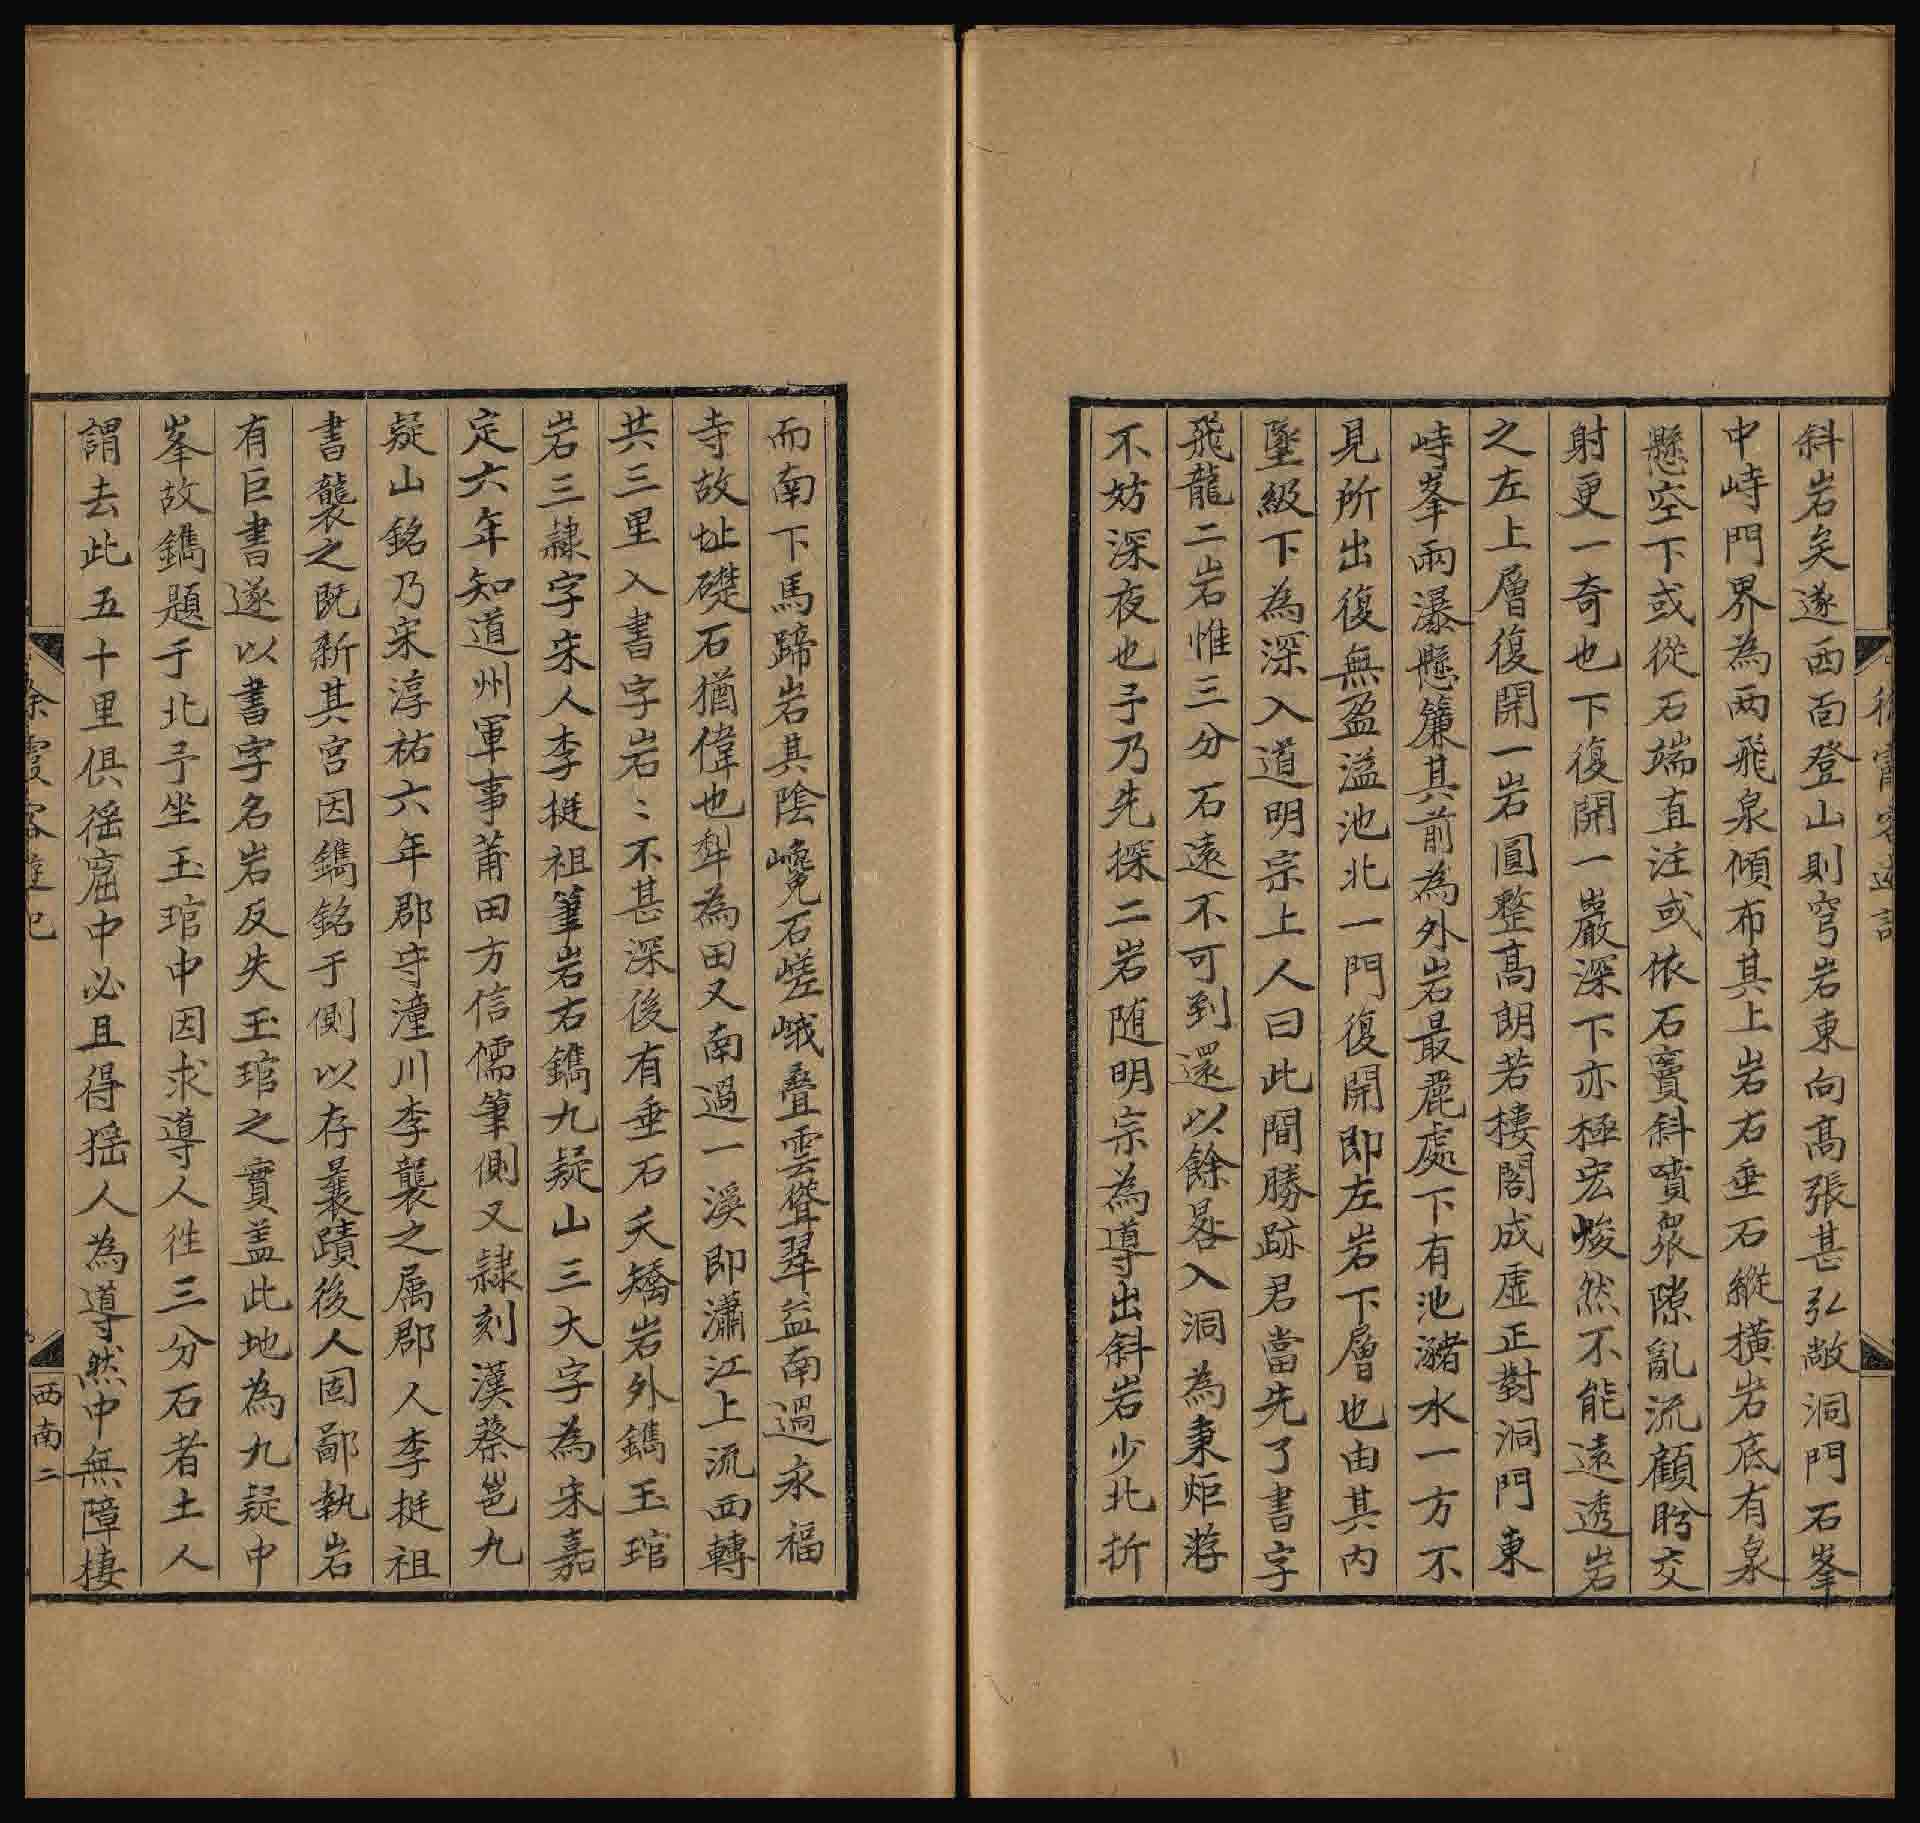 斜岩矣遂西面登山則穹岩東向高張甚弘敞洞門石峯
中峙門界為兩飛泉傾布其上岩右垂石縱橫岩底有泉
懸空下或從石端直注或依石竇斜噴衆隙亂流顧盼交
射更一奇也下復開一巖深下亦極宏峻然不能遠透岩
之左上層復開一岩圓整高朗若樓閣成虛正對洞門東
峙峯兩瀑懸簾其前為外岩最麗處下有池瀦水一方不
見所出復無盈溢池北一門復開即左岩下層也由其內
墜級下為深入道明宗上人曰此間勝跡君當先了書字
飛龍二岩惟三分石遠不可到還以餘晷入洞為秉炬游
不妨深夜也予乃先探二岩随明宗為導出斜岩少北折
而南下馬蹄岩其陰巉石嵯峨疊雲聳翠益南過永福
寺故址礎石猶偉也犁為田又南過一溪即瀟江上流西轉
共三里入書字岩〻不甚深後有垂石夭矯岩外鐫玉琯
岩三隸字宋人李挺祖筆岩右鐫九疑山三大字為宋嘉
定六年知道州軍事莆田方信儒筆側又隸刻漢蔡邕九
疑山銘乃宋淳祐六年郡守潼川李襲之属郡人李挺祖
書襲之既新其宮因鐫銘于側以存曩蹟後人固鄙執岩
有巨書遂以書字名岩反失玉琯之實盖此地為九疑中
峯故鐫題于北予坐玉琯中因求導人徃三分石者土人
謂去此五十里俱徭窟中必且得猺人為導然中無障棲
徐霞客遊記
西南二